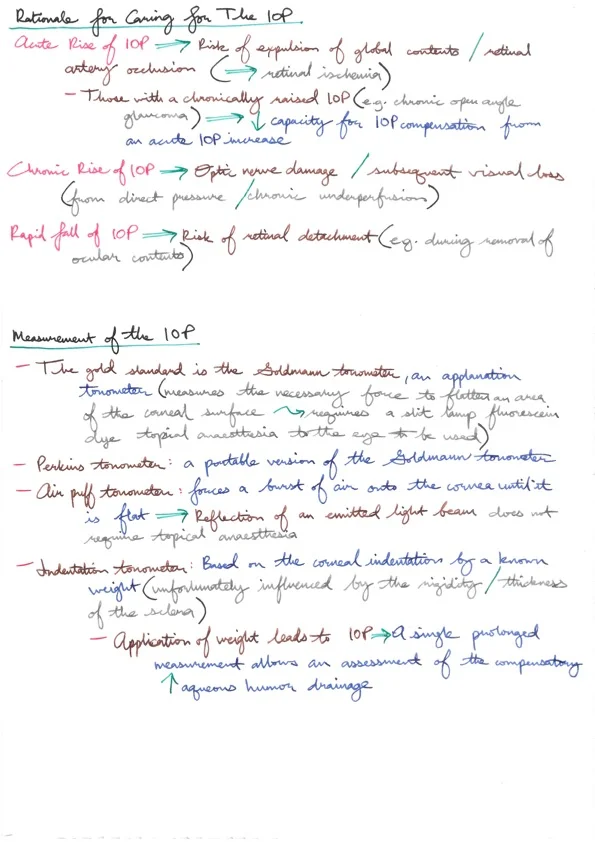 Rationale for Caring for The IOP
Acute Rise of IOP ⟹ Risk of expulsion of global contents / retinal
artery occlusion (⟹ retinal ischemia)
- Those with a chronically raised IOP (e.g. chronic open angle
glaucoma) ⟹ ↓ capacity for IOP compensation from
an acute IOP increase
Chronic Rise of IOP → Optic nerve damage / subsequent visual loss
(from direct pressure / chronic underperfusion)
Rapid fall of IOP ⟹ Risk of retinal detachment (e.g. during removal of
ocular contents)
Measurement of the IOP
- The gold standard is the Goldmann tonometer, an applanation
tonometer (measures the necessary force to flatten an area
of the corneal surface ⤳ requires a slit lamp fluorescein
dye topical anaesthesia to the eye to be used)
- Perkins tonometer: a portable version of the Goldmann tonometer
- Air puff tonometer: forces a burst of air onto the cornea until it
is flat ⟹ Reflection of an emitted light beam does not
require topical anaesthesia
- Indentation tonometer: Based on the corneal indentation by a known
weight (unfortunately influenced by the rigidity / thickness
of the sclera)
- Application of weight leads to IOP ⟹ A single prolonged
measurement allows an assessment of the compensatory
↑ aqueous humor drainage